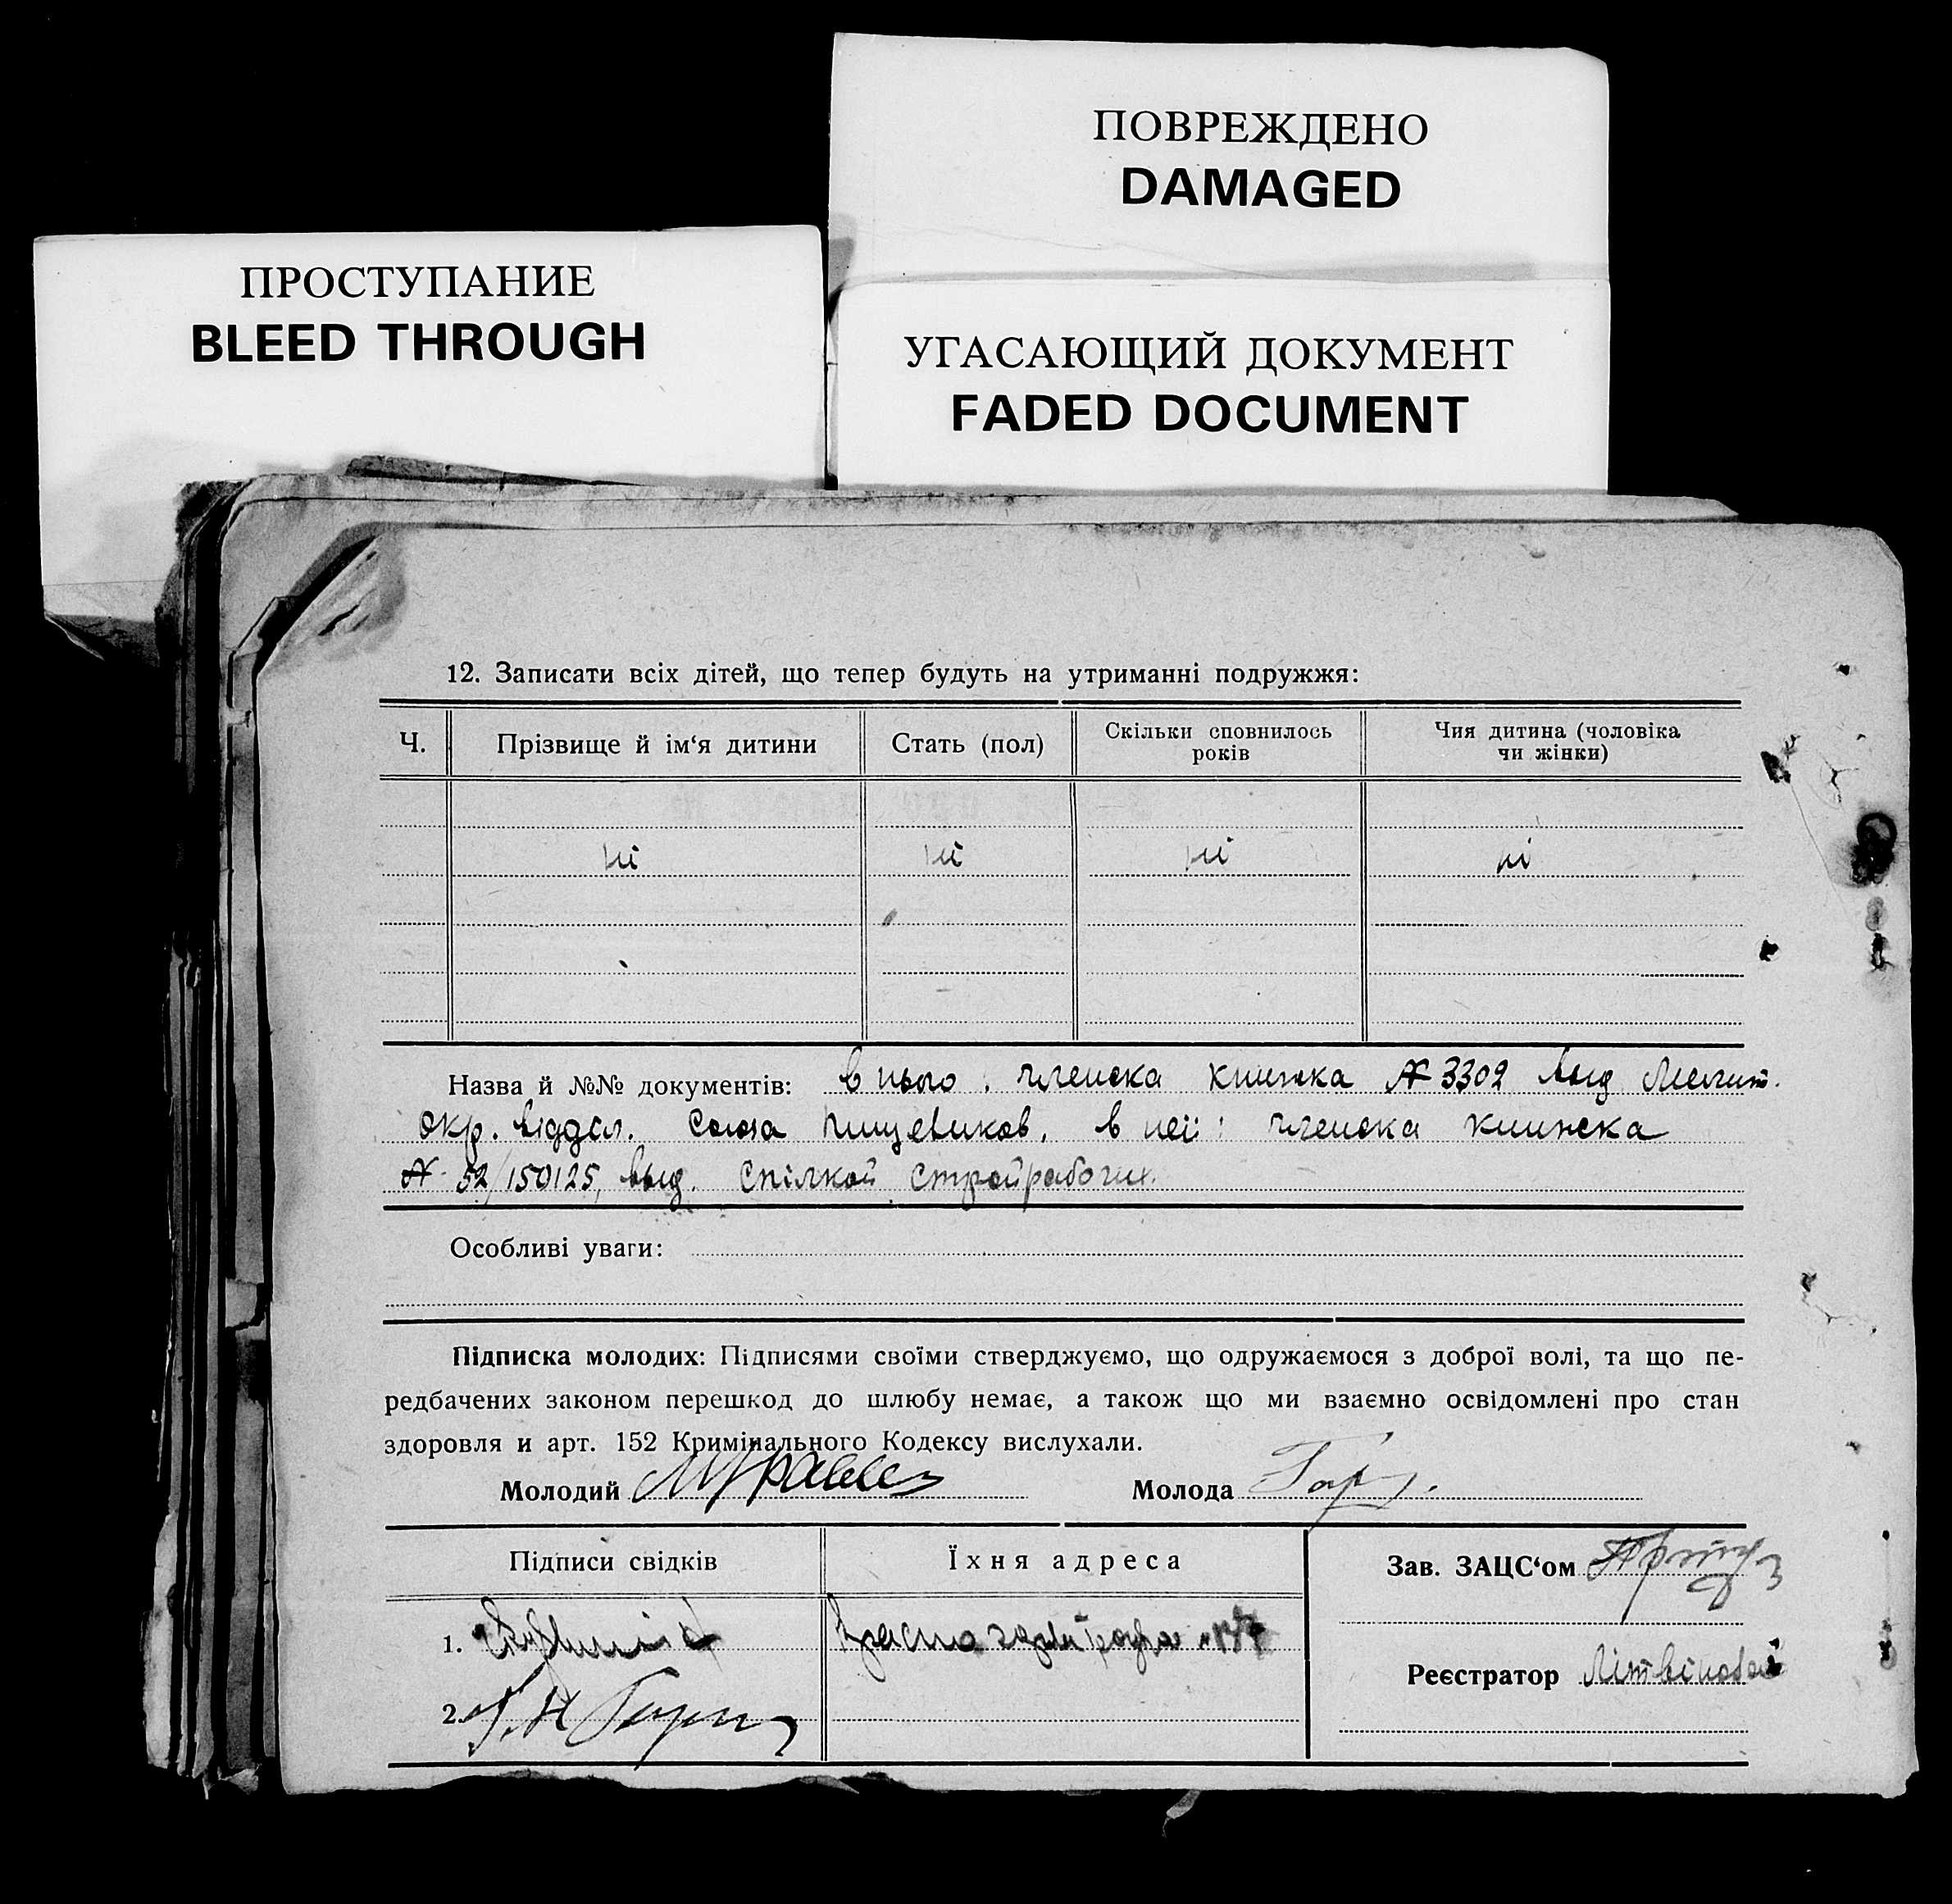 ПОВРЕЖДЕНО
DAMAGED
ПРОСТУПАНИЕ
BLEED THROUGH
УГАСАЮЩИЙ ДОКУМЕНТ
FADED DOCUMENT
12. Записати всіх дітей, що тепер будуть на утриманні подружжя:
Ч.
Прізвище й ім‘я дитини
Стать (пол)
Скільки сповнилось
років
Чия дитина (чоловіка
чи жінки)
ні ні ні ні
Назва й №№ документів: в нього: членска книжка № 3302 выд Мелит.
окр. відділ. Союза пищевиков, в неї: членска книжка
№ 52/150125, выд. Спілкой Стройрабочих.
Особливі уваги:
Підписка молодих: Підписями своїми стверджуємо, що одружаємося з доброї волі, та що пе-
редбачених законом перешкод до шлюбу немає, а також що ми взаємно освідомлені про стан
здоровля и арт. 152 Кримінального Кодексу вислухали.
Молодий
Молода
Підписи свідків
Їхня адреса
Зав. ЗАЦС‘ом
1.
2.
Реєстратор Літвінова